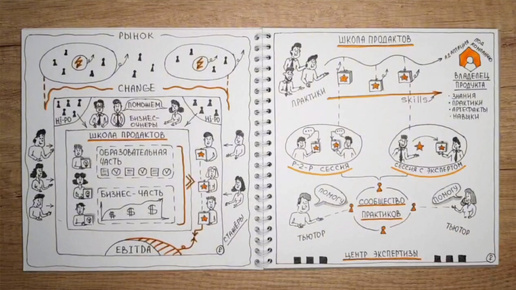 РЫНОК
CHANGE
HI-PO
ПОМОЖЕМ
БИЗНЕС-
ОУНЕРЫ
HI-PO
ШКОЛА ПРОДАКТОВ
ОБРАЗОВАТЕЛЬНАЯ
ЧАСТЬ
БИЗНЕС-ЧАСТЬ
$ $ $
EBITDA
СТАЖЕРЫ
ШКОЛА ПРОДАКТОВ
ПРАКТИКИ
skills
ВЛАДЕЛЕЦ
ПРОДУКТА
• ЗНАНИЯ
• ПРАКТИКИ
• АРТЕФАКТЫ
• НАВЫКИ
P2-P СЕССИЯ
СЕССИЯ С ЭКСПЕРТОМ
ПОМОГУ
СООБЩЕСТВО
ПРАКТИКОВ
ПОМОГУ
ТЬЮТОР
ТЬЮТОР
ЦЕНТР ЭКСПЕРТИЗЫ